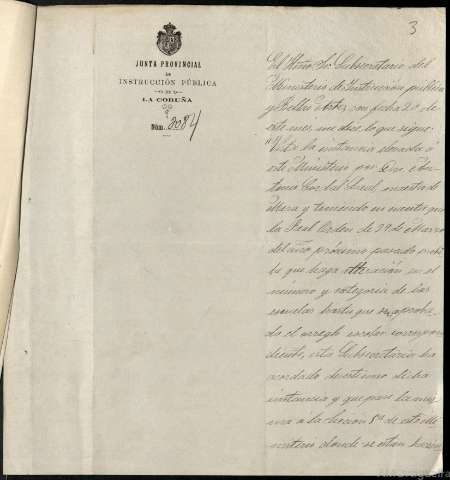 3
JUNTA PROVINCIAL
DE
INSTRUCCIÓN PÚBLICA
DE
LA CORUÑA
Núm. 3084
El Iltmo. Sr. Subsecretario del
Ministerio de Instrucción pública
y Bellas Artes con fecha 20 de
este mes, me dice lo que sigue:
"Vista la instancia elevada á
este Ministerio por Dña.
maestra de
Mera y teniendo en cuenta que
la Real Orden de 29 de Marzo
del año próximo pasado
que haga alteración en el
número y categoría de las
escuelas hasta que se aproba-
do el arreglo escolar correspon-
diente, esta Subsecretaría ha
acordado desestimar dicha
instancia y que pase la mis-
ma a la Sección 5ª de este Mi-
nisterio donde se están